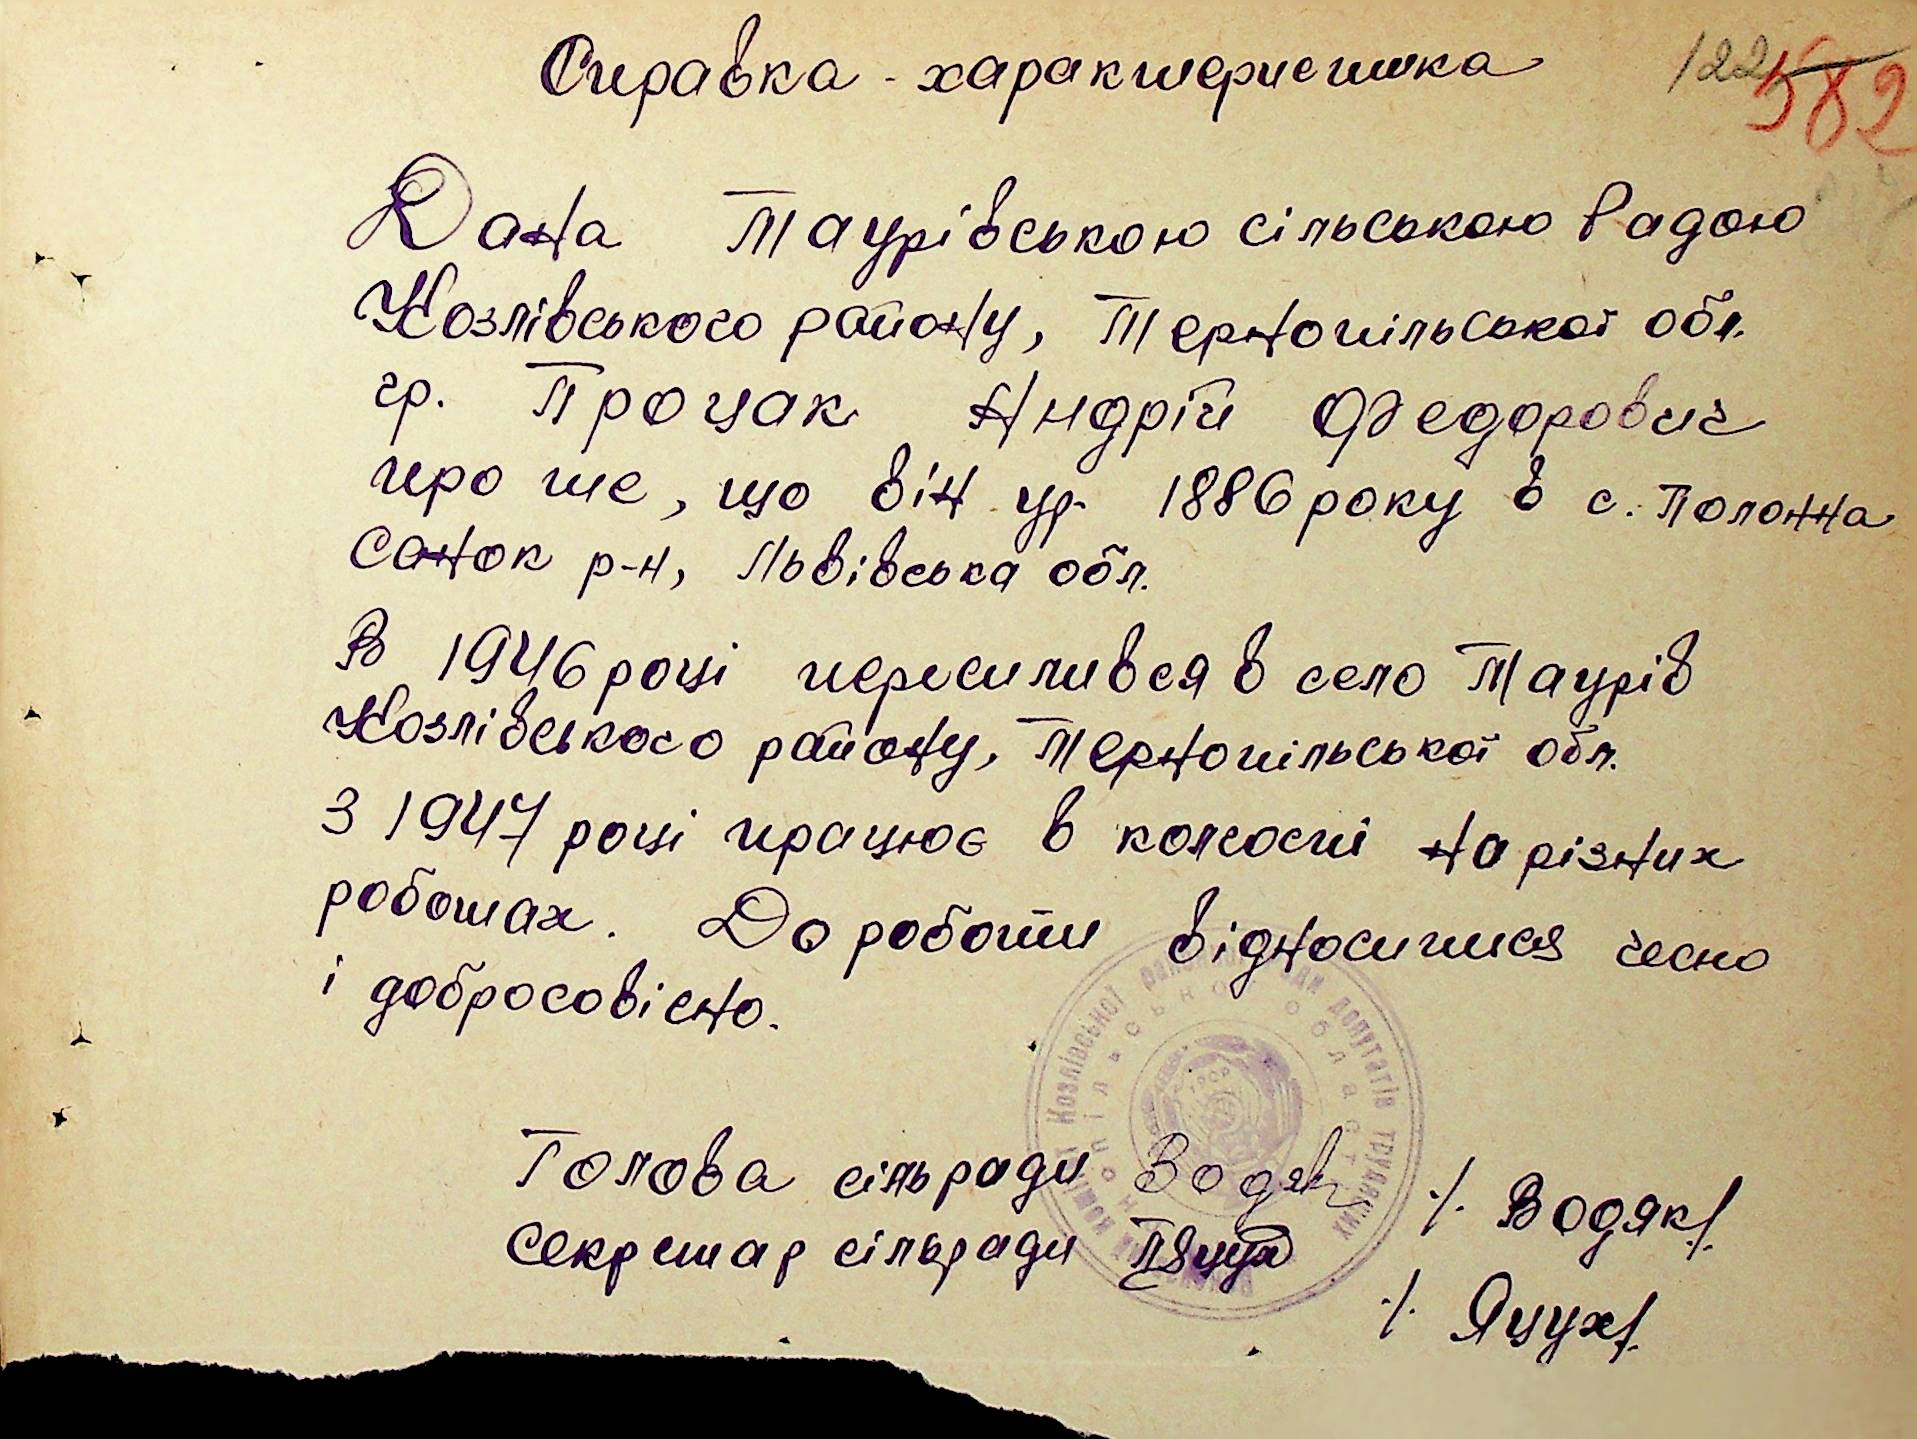 Справка - характеристика
122
582
Дана Таурівською сільською Радою
Козлівського району, Тернопільської обл.
гр. Процак Андрій Федорович
про те, що він ур. 1886 року в с. Полонна
Санок р-н, Львівська обл.
В 1946 році переселився в село Таурів
Козлівського району, Тернопільської обл.
З 1947 році працює в колгоспі на різних
роботах. До роботи відноситися чесно
і добросовісно.
Голова сільради Водяк /. Водяк/.
Секретар сільради /. Яцух/.
Козлівської депутатів трудящих
області